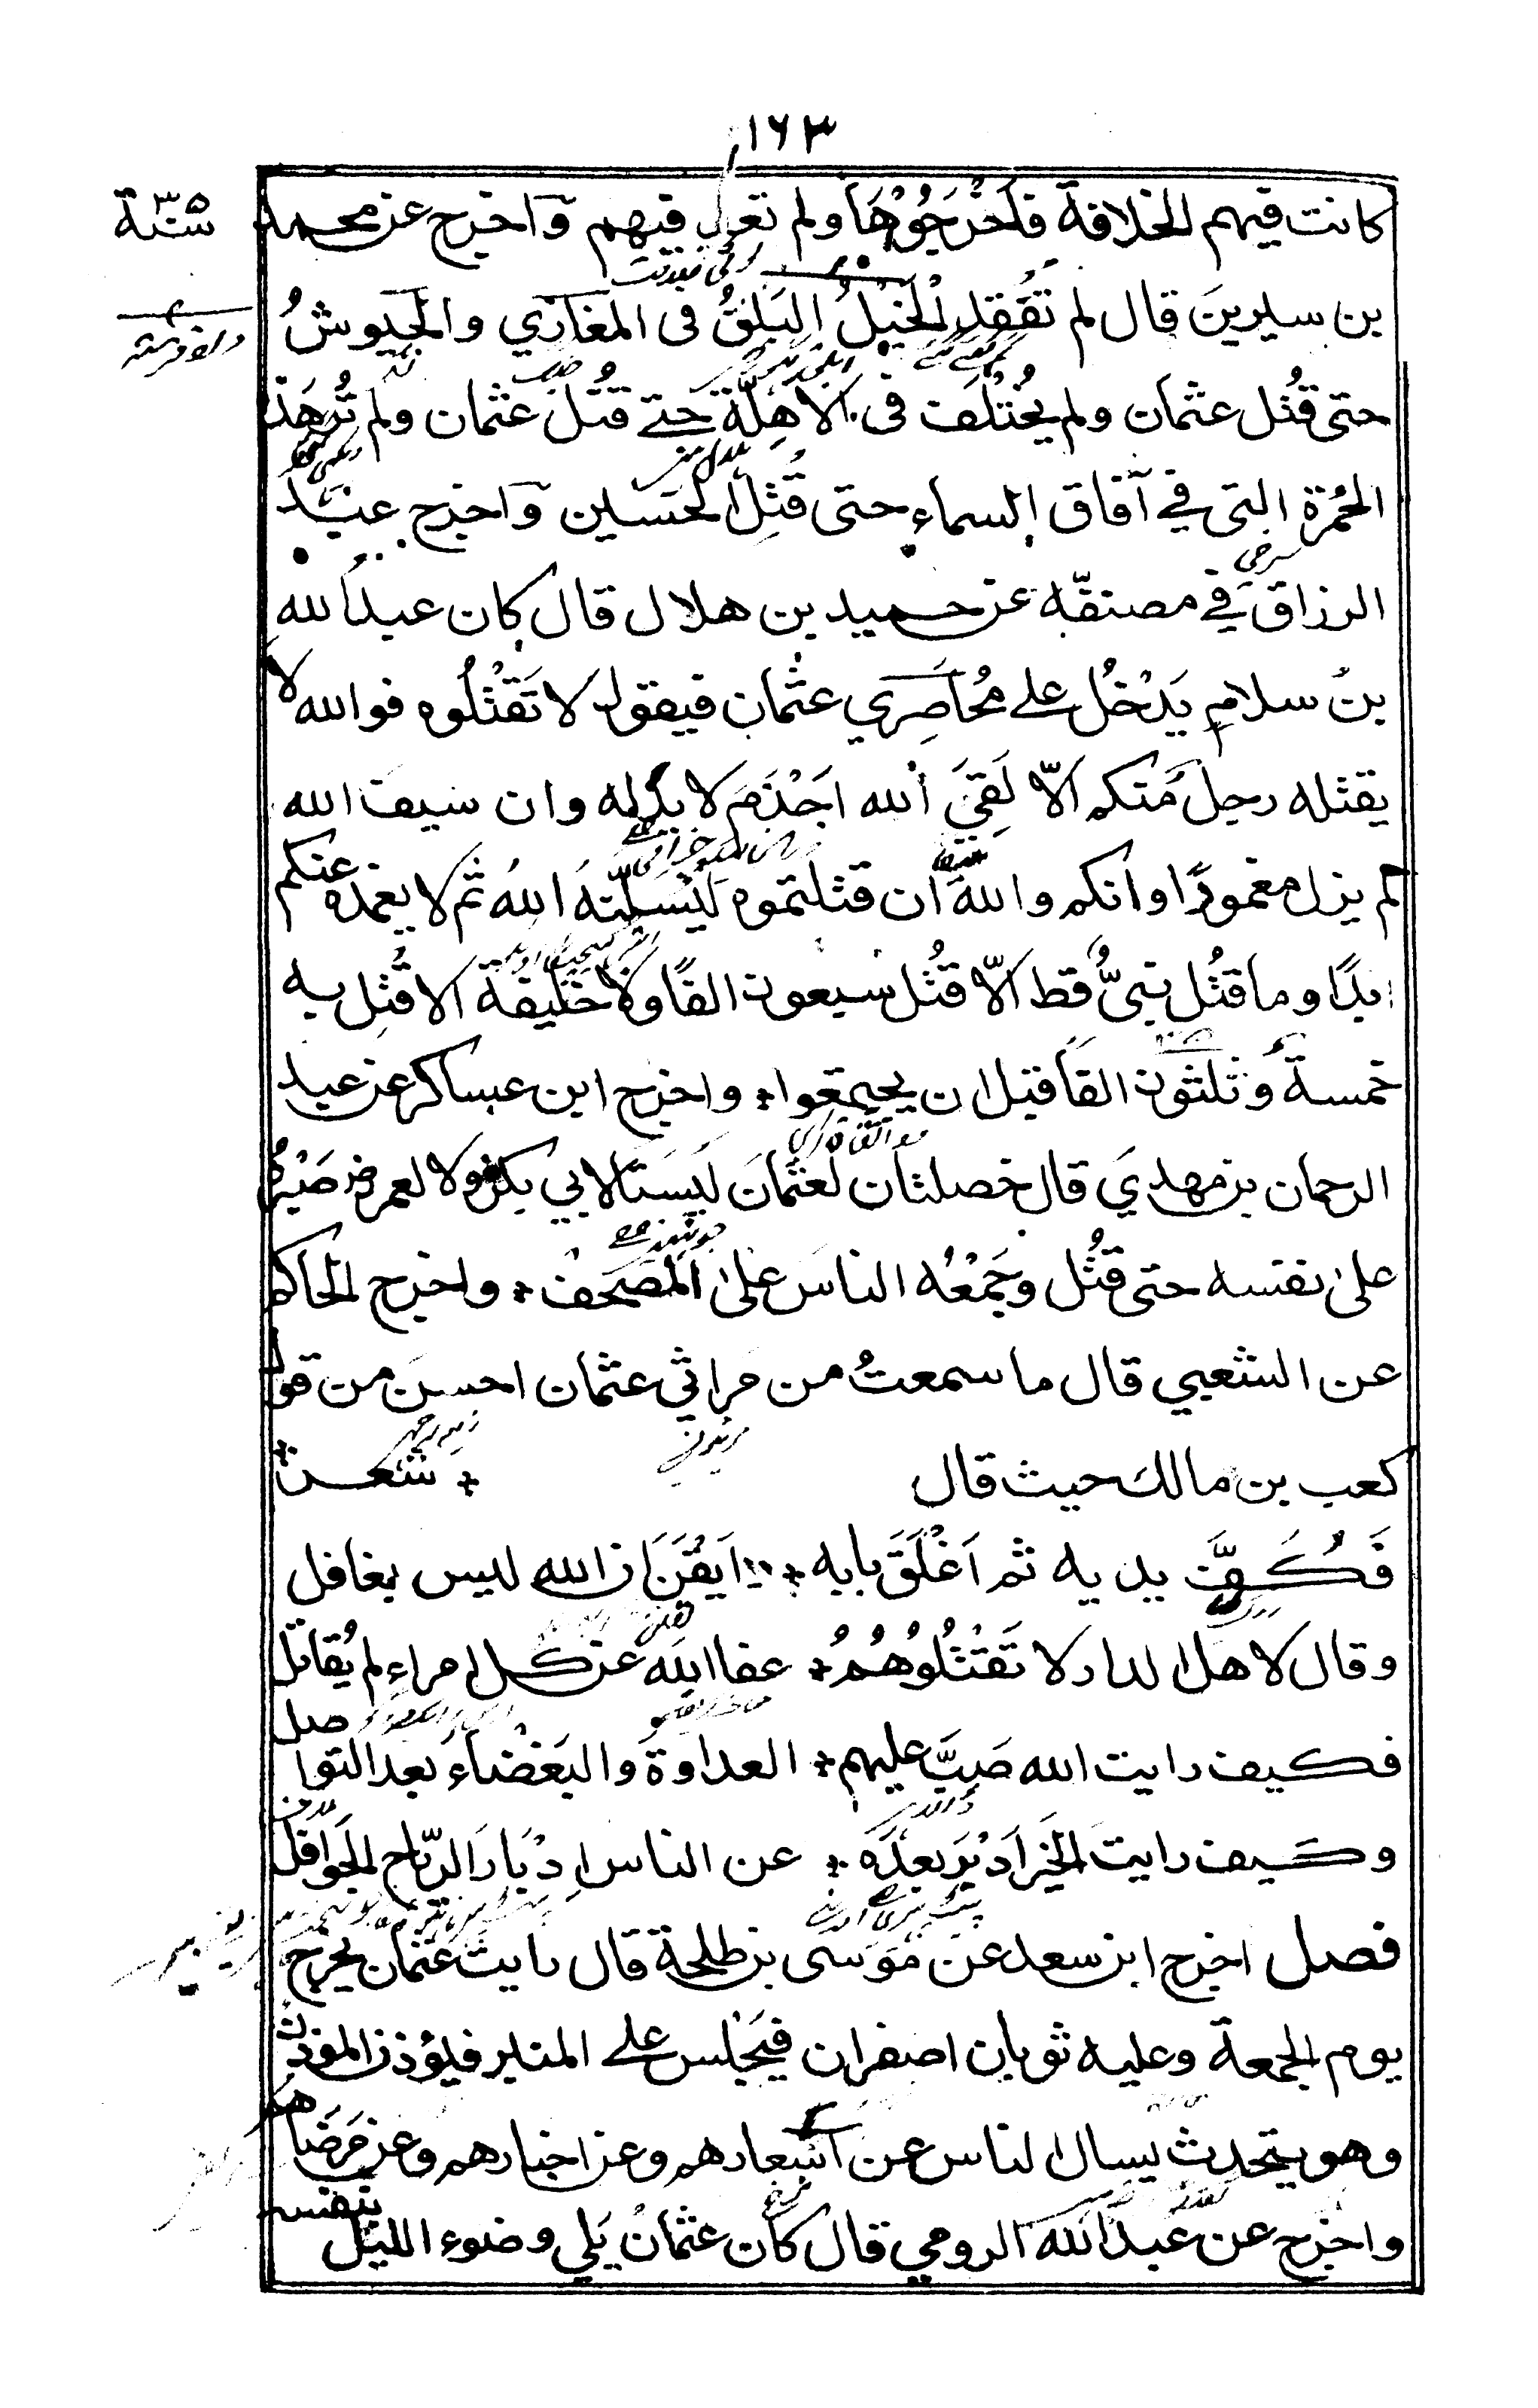 ١٦٣
كانت فيهم الخلافة فاَخْرَجُوْهَا ولم تعد فيهم وَاخرج عن محمد
سنة ٣٥
بن سيرين قال لم تُفْقَدِ الْخَيْلُ البَلْقُ فى المغازي والْجُيوشُ
حتى قُتُل عثمان ولم يُخْتَلَف فى الاهِلَّة حتے قُتل عثمان ولم تُرَ هَذه
الحُمْرة التى في آفاق السماء حتى قُتِل الحُسَين وَاخرج عبد
الرزاق في مصنفّه عن حميد بن هلال قال كان عبدُالله
بنُ سلامٍ يَدْخُل على مُحَاصِري عثمان فيقول لا تَقْتُلُوه فوالله لا
يقتله رجل مّنكم الاّ لَقِيَ الله اَجْذَمَ لا يد له وان سيف الله
لم يزل مغمودًا وانكم والله ان قتلتموه لَيَسُلَّنّهُ اللهُ ثم لا يغمده عنكم
ابدًا وما قُتُل نبيٌّ قط الاّ قُتُل سبعون الفًا ولا خليفة الا قُتِل به
خمسةٌ وثلثون الفًا قبل ان يجتمعوا ٭ واخرج ابن عساكر عن عبد
الرحمان بن مهدي قال خصلتان لعثمانَ ليسَتَا لابي بكر ولا لعمر رض صَبْرُهُ
على نفسه حتى قُتُل وجَمْعُه الناسَ على المصحف ٭ واخرج الحاكم
عن الشعبي قال ما سمعتُ من مراثي عثمان احسنَ من قول
كعب بن مالك حيث قال ٭ شعــر ٭
فَكَفَّ يديه ثم اَغْلَقَ بابه ٭ وايقَنَ ان الله ليس بغافل
وقال لاهل الدار لا تَقْتُلُوهُمُ ٭ عفا الله عن كل امراء لم يُقاتل
فكيف رايت الله صَبَّ عليهم ٭ العداوةَ والبَغْضَاءَ بعد التواصل
وكيف رايت الخيَر اَدْبَر بعدَه ٭ عن الناس اِدْبَارَ الرّياح الجَوافل
فصل اخرج ابن سعد عن مُوسَى بن طلحة قال رايت عثمان يخرج
يوم الجمعة وعليه ثوبان اصفران فيَجْلس على المنبر فيؤذن المؤذن
وهو يتحدث يسال الناس عن اَسْعارهم وعن اخبارهم وعن مَرضَاهم
واخرج عن عبد الله الرومي قال كان عثمانُ يَلي وضوء الليل بنفسه